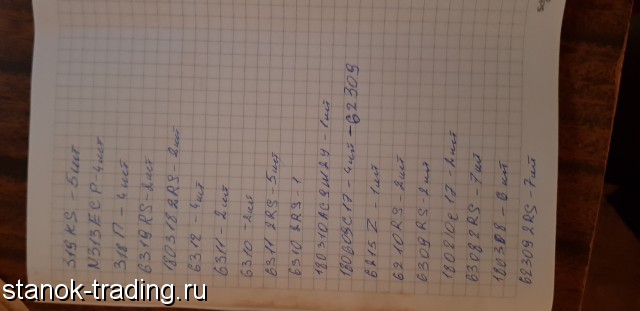 319 KS - 5 шт
N313 ECP - 4 шт
318 П - 4 шт
6319 RS - 2 шт
180318 2RS 2 шт
6312 - 4 шт
6311 - 2 шт
6310 - 1 шт
6311 2RS - 5 шт
6310 2RS - 1
180310 - 1 шт
180609С17 - 4 шт - 62309
6215 Z - 1 шт
6210 RS - 2 шт
6309 RS - 2 шт
180210С17 - 2 шт
6308 2RS - 7 шт
180308 - 6 шт
62309 2RS 7 шт
stanok-trading.ru